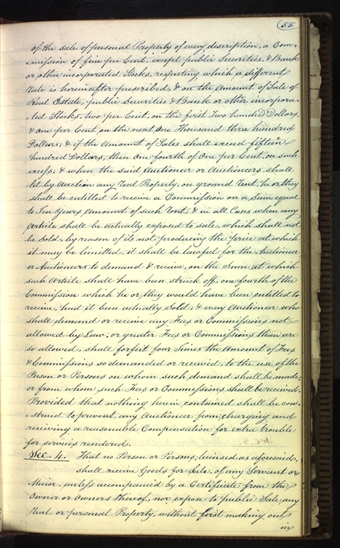 55
of the sale of personal Property of every description, a Com-
mission of five per Cent. except public Securities, & Bank
or other incorporated Stocks, respecting which a different
Rate is hereinafter prescribed & on the Amount of Sale of
Real Estate, public Securities & Bank or other incorpora-
ted Stocks, two per Cent. on the first Two hundred Dollars,
& one per Cent on the next One Thousand three hundred
Dollars; & if the Amount of Sales shall exceed fifteen
hundred Dollars, then One fourth of One per Cent. on such
excess; & when the said Auctioneer or Auctioneers shall
let by Auction any Real Property, on ground Rent, he or they
shall be entitled to receive a Commission on a Sum equal
to Ten Years Amount of such Rent; & in all Cases when any
Article shall be actually exposed to sale, which shall not
be Sold, by reason of its not producing the price at which
it may be limited, it shall be lawful for the Auctioneer
or Auctioneers to demand & receive, on the Sum at which
such Article shall have been Struck off, one fourth of the
Commission which he or they would have been entitled to
receive, had it been actually Sold; & every Auctioneer who
shall demand or receive any Fees or Commissions not
allowed by Law, or greater Fees or Commissions than are
so allowed, shall forfeit four Times the Amount of Fees
& Commissions so demanded or received, to the use of the
Person or Persons on whom such demand shall be made,
or from whom such Fees or Commissions shall be received;
Provided that nothing herein contained shall be con-
strued to prevent any Auctioneer from charging and
receiving a reasonable Compensation for extra trouble
for services rendered.
Sec. 4. That no Person or Persons, licensed as aforesaid,
shall receive Goods for Sale, of any Servant or
Minor, unless accompanied by a Certificate from the
Owner or Owners thereof, nor expose to public Sale any
Real or personal Property, without first making out
in